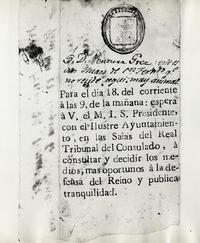 Para el dia 18. del corriente
à las 9. de la mañana: espera
à V. el M. I. S. Presidente,
con el Ilustre Ayuntamien-
to, en las Salas del Real
Tribunal del Consulado, à
consultar y decidir los me-
dios, mas oportunos à la de-
fensa del Reino y publica
tranquilidad.